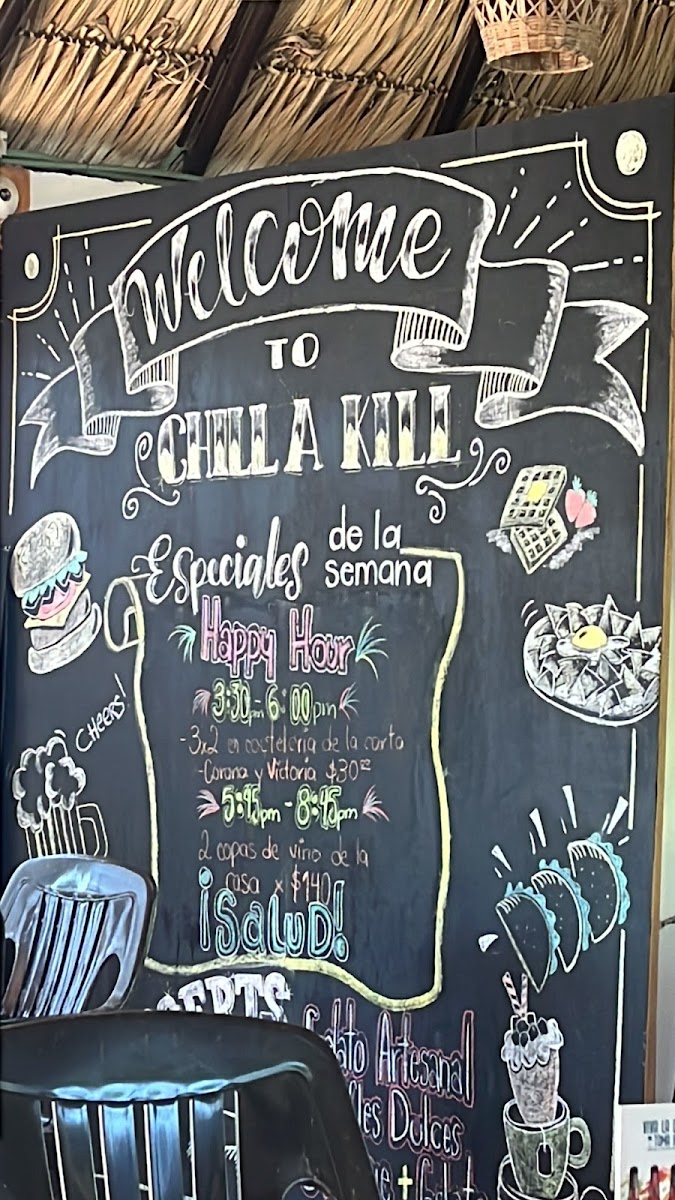 Welcome
TO
CHILLA KILL
Especiales de la semana
Happy Hour
3:30pm-6:00pm
-3x2 en coctelería de la carta
-Corona y Victoria $30⁰⁰
5:45pm - 8:45pm
2 copas de vino de la
casa x $140
¡SALUD!
CHEERS!
Artesanal
Dulces
VIVA LA